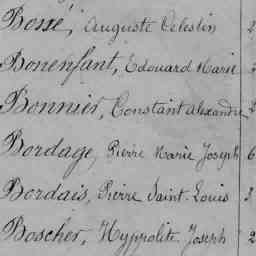 Bossé, Auguste Celestin 2
Bonenfant, Edouard Marie
Bonnier, Constant Alexandre
Bordage, Pierre Marie Joseph 6
Bordais, Pierre Saint-Louis
Boscher, Hyppolite Joseph 2